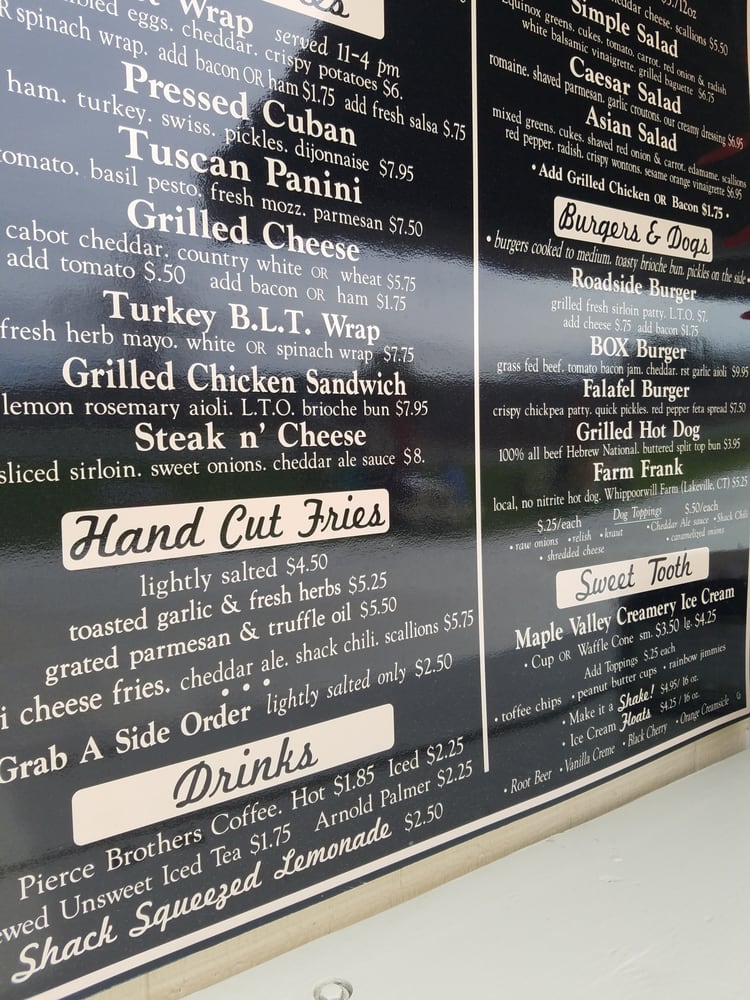 Wrap served 11-4 pm
eggs. cheddar. crispy potatoes $6.
R spinach wrap. add bacon OR ham $1.75 add fresh salsa $.75
Pressed Cuban
ham. turkey. swiss. pickles. dijonnaise $7.95
Tuscan Panini
tomato. basil pesto. fresh mozz. parmesan $7.50
Grilled Cheese
cabot cheddar. country white OR wheat $5.75
add tomato $.50 add bacon OR ham $1.75
Turkey B.L.T. Wrap
fresh herb mayo. white OR spinach wrap $7.75
Grilled Chicken Sandwich
lemon rosemary aioli. L.T.O. brioche bun $7.95
Steak n' Cheese
sliced sirloin. sweet onions. cheddar ale sauce $8.
Hand Cut Fries
lightly salted $4.50
toasted garlic & fresh herbs $5.25
grated parmesan & truffle oil $5.50
i cheese fries. cheddar ale. shack chili. scallions $5.75
• • •
Grab A Side Order lightly salted only $2.50
Drinks
Pierce Brothers Coffee. Hot $1.85 Iced $2.25
ewed Unsweet Iced Tea $1.75 Arnold Palmer $2.25
Shack Squeezed Lemonade $2.50
/12oz
cheddar cheese, scallions $5.50
Simple Salad
equinox greens. cukes. tomato. carrot. red onion & radish
white balsamic vinaigrette. grilled baguette $6.75
Caesar Salad
romaine. shaved parmesan. garlic croutons. our creamy dressing $6.95
Asian Salad
mixed greens. cukes. shaved red onion & carrot. edamame. scallions
red pepper. radish. crispy wontons. sesame orange vinaigrette $6.95
• Add Grilled Chicken OR Bacon $1.75 •
Burgers & Dogs
• burgers cooked to medium. toasty brioche bun. pickles on the side •
Roadside Burger
grilled fresh sirloin patty. L.T.O. $7.
add cheese $.75 add bacon $1.75
BOX Burger
grass fed beef. tomato bacon jam. cheddar. rst garlic aioli $9.95
Falafel Burger
crispy chickpea patty. quick pickles. red pepper feta spread $7.50
Grilled Hot Dog
100% all beef Hebrew National. buttered split top bun $3.95
Farm Frank
local, no nitrite hot dog. Whippoorwill Farm (Lakeville, CT) $5.25
Dog Toppings
$.25/each $.50/each
• raw onions • relish • kraut • Cheddar Ale sauce • Shack Chili
• shredded cheese • caramelized onions
Sweet Tooth
Maple Valley Creamery Ice Cream
• Cup OR Waffle Cone sm. $3.50 lg. $4.25
Add Toppings $.25 each
• toffee chips • peanut butter cups • rainbow jimmies
• Make it a Shake! $4.95/16 oz.
• Ice Cream Floats $4.25/16 oz.
• Root Beer • Vanilla Creme • Black Cherry • Orange Creamsicle